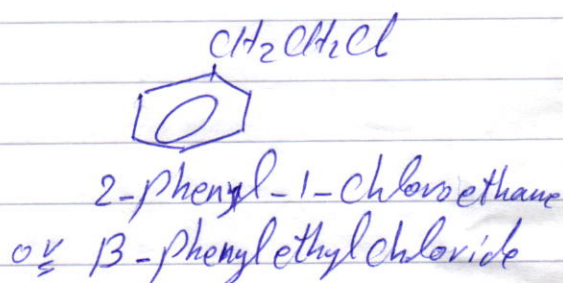 CH₂CH₂Cl
2-phenyl-1-chloroethane
or β-phenylethylchloride